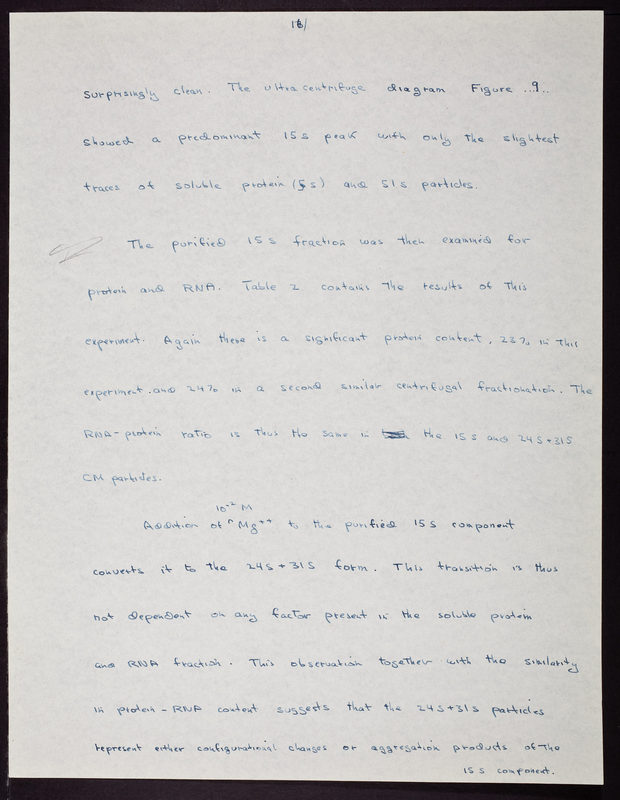 16/
surprisingly clean. The ultracentrifuge diagram Figure ..9..
showed a predominant 15 s peak with only the slightest
traces of soluble protein (5 s) and 51 s particles.
The purified 15 s fraction was then examined for
protein and RNA. Table 2 contains the results of this
experiment. Again there is a significant protein content, 23% in this
experiment. and 24% in a second similar centrifugal fractionation. The
RNA-protein ratio is thus the same in the 15 s and 24 s + 31 s
CM particles.
10⁻² M
Addition of ^ Mg++ to the purified 15 s component
converts it to the 24 s + 31 s form. This transition is thus
not dependent on any factor present in the soluble protein
and RNA fraction. This observation together with the similarity
in protein - RNA content suggests that the 24 s + 31 s particles
represent either configurational changes or aggregation products of the
15 s component.